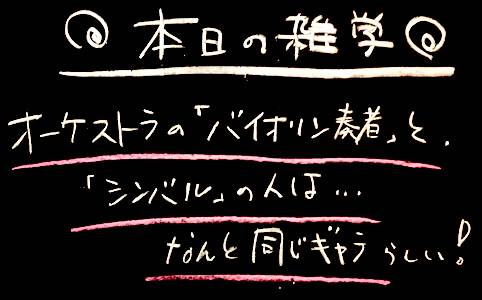 本日の雑学
オーケストラの「バイオリン奏者」と、
「シンバル」の人は…
なんと同じギャラらしい!